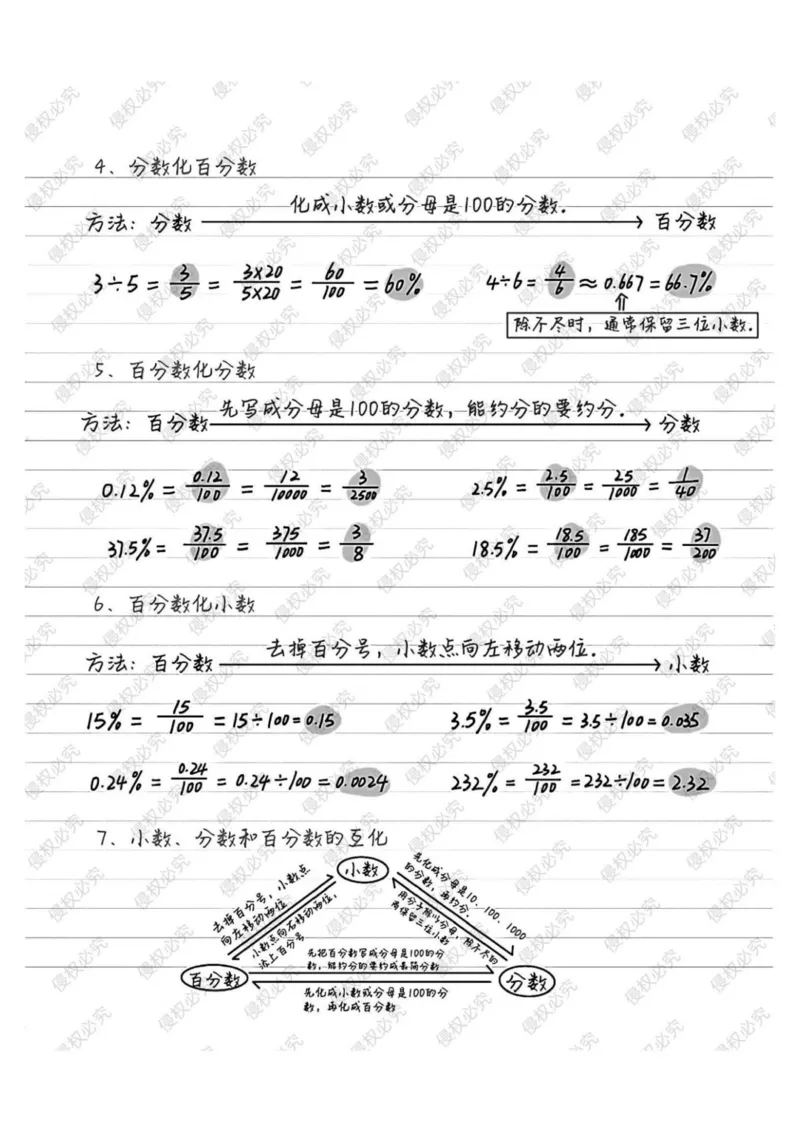 4、分数化百分数
化成小数或分母是100的分数.
方法：分数 → 百分数
3÷5 = 3/5 = 3×20/5×20 = 60/100 = 60%  4÷6 = 4/6 ≈ 0.667 = 66.7%
除不尽时，通常保留三位小数.
5、百分数化分数
先写成分母是100的分数，能约分的要约分.
方法：百分数 → 分数
0.12% = 0.12/100 = 12/10000 = 3/2500  2.5% = 2.5/100 = 25/1000 = 1/40
37.5% = 37.5/100 = 375/1000 = 3/8  18.5% = 18.5/100 = 185/1000 = 37/200
6、百分数化小数
去掉百分号，小数点向左移动两位.
方法：百分数 → 小数
15% = 15/100 = 15÷100 = 0.15  3.5% = 3.5/100 = 3.5÷100 = 0.035
0.24% = 0.24/100 = 0.24÷100 = 0.0024  232% = 232/100 = 232÷100 = 2.32
7、小数、分数和百分数的互化
小数
去掉百分号，小数点
向左移动两位
小数点向右移动两位，
添上百分号
先化成分母是10、100、1000
的分数，再约分.
用分子除以分母，除不尽的
再保留三位小数
百分数
先把百分数写成分母是100的分
数，能约分的要约成最简分数
先化成小数或分母是100的分
数，再化成百分数
分数
侵权必究